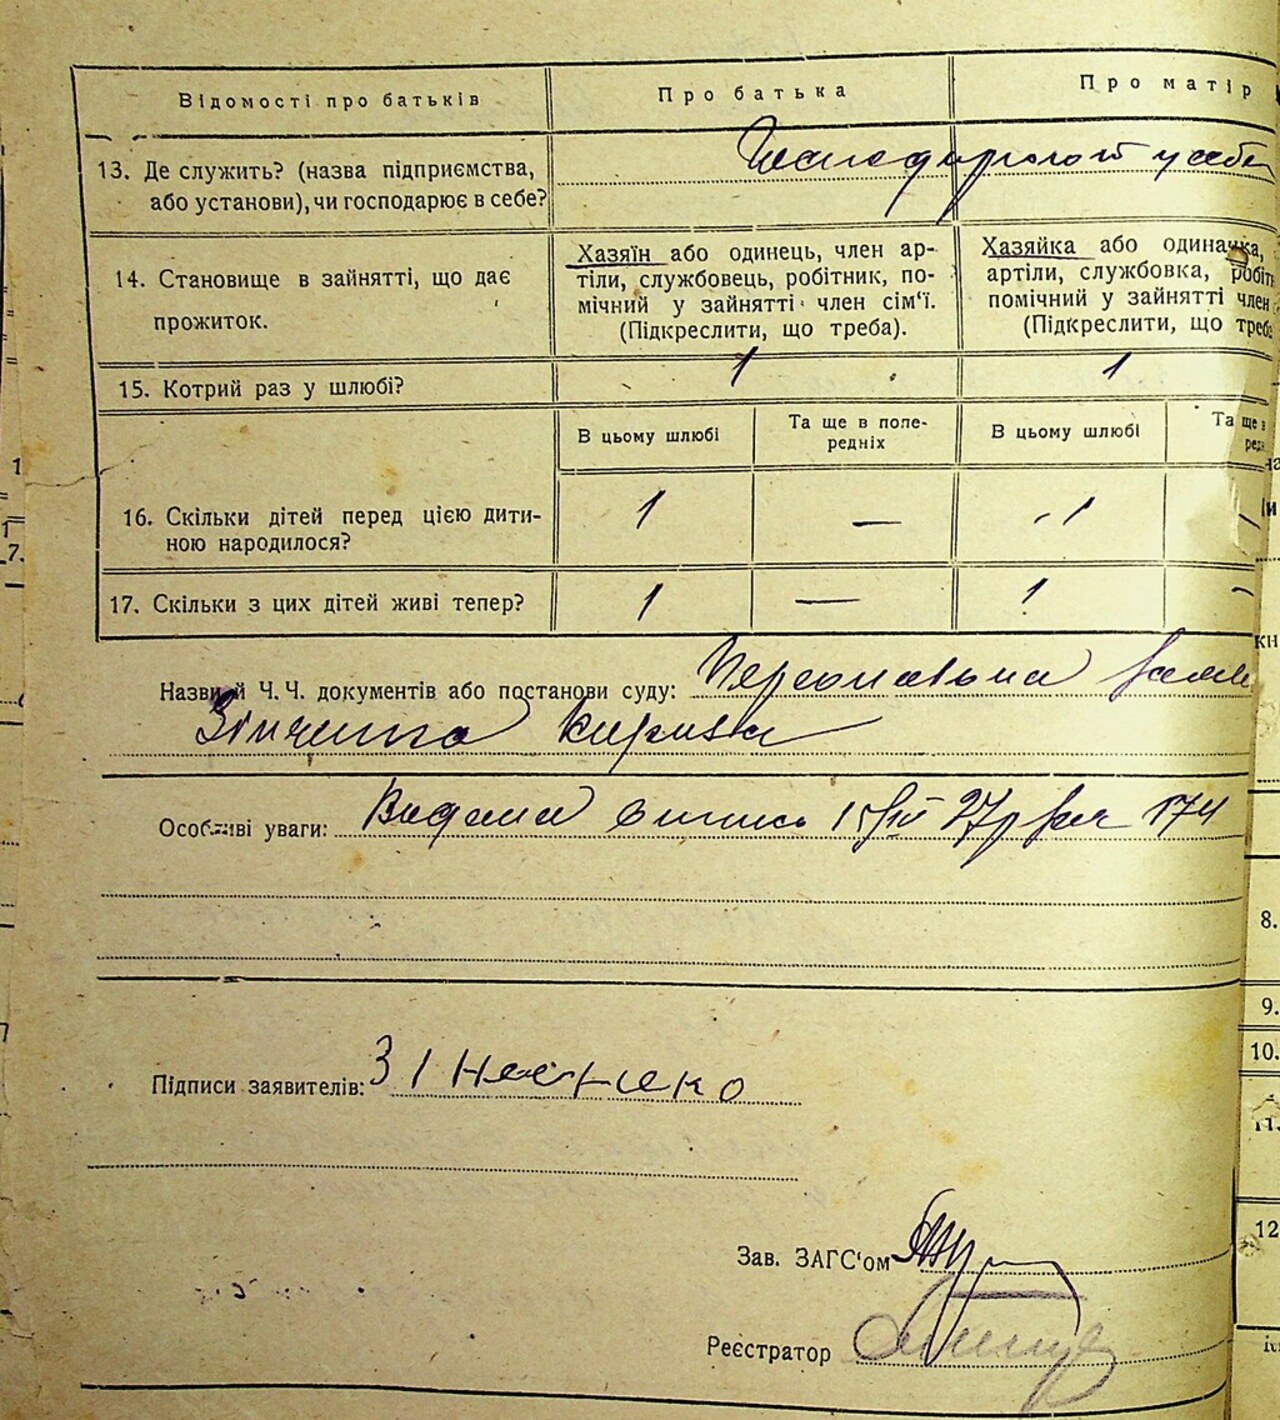 Відомості про батьків
Про батька
Про матір
13. Де служить? (назва підприємства,
або установи), чи господарює в себе?
14. Становище в зайнятті, що дає
прожиток.
Хазяїн або одинець, член ар-
тіли, службовець, робітник, по-
мічний у зайнятті член сім'ї.
(Підкреслити, що треба).
Хазяйка або одиначка,
артіли, службовка,
помічний у зайнятті член
(Підкреслити, що
15. Котрий раз у шлюбі?
1
1
В цьому шлюбі
Та ще в попе-
редніх
В цьому шлюбі
Та ще в
16. Скільки дітей перед цією дити-
ною народилося?
1
—
1
—
17. Скільки з цих дітей живі тепер?
1
—
1
—
Назви й Ч.Ч. документів або постанови суду: Персональна
Зінченко Кирила
Особливі уваги: Видана 15/IV 27р 174
Підписи заявителів:
Зав. ЗАГС'ом
Реєстратор
8.
9.
10.
11.
12